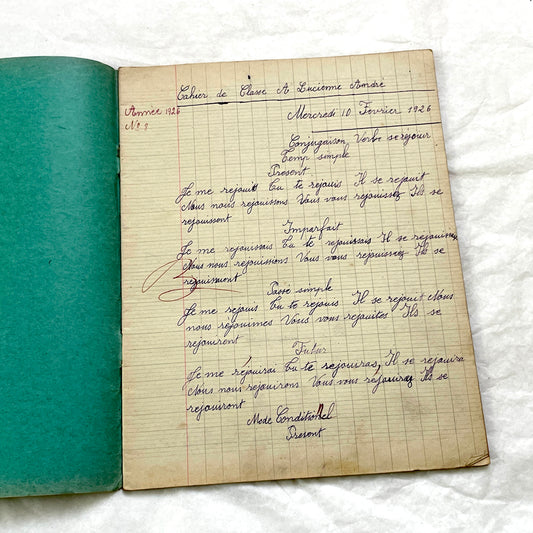 Cahier de Classe A Lucienne André
Année 1926
Mercredi 10 Fevrier 1926
No 9
Conjugaison Verbe se rejouir
Temp simple
Present
Je me rejouis Tu te rejouis Il se rejouit
Nous nous rejouissons Vous vous rejouissez Ils se
rejouissent
Imparfait
Je me rejouissais Tu te rejouissais Il se rejouissait
Nous nous rejouissions Vous vous rejouissiez Ils se
rejouissaient
Passe simple
Je me rejouis Tu te rejouis Il se rejouit Nous
nous rejouimes Vous vous rejouites Ils se
rejouirent
Futur
Je me réjouirai Tu te rejouiras, Il se rejouira
Nous nous rejouirons Vous vous réjouirez Ils se
rejouiront
Mode Conditionnel
Present